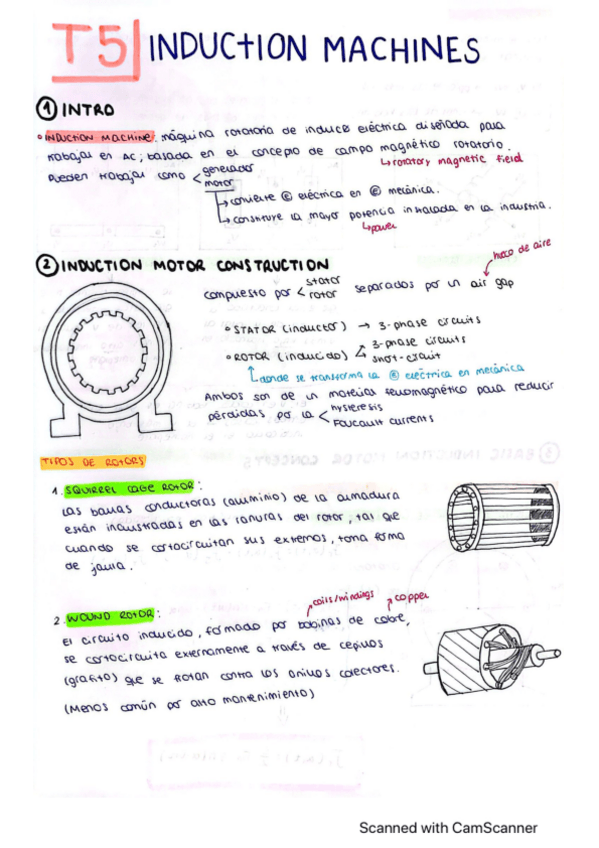 T5 INDUCTION MACHINES
① INTRO
• INDUCTION MACHINE: máquina rotatoria de induce eléctrica diseñada para
trabajar en AC; basada en el concepto de campo magnético rotatorio.
↳ rotatory magnetic field
Pueden trabajar como < generador
motor
↳ convierte Ⓔ eléctrica en Ⓔ mecánica.
↳ constituye la mayor potencia instalada en la industria.
↳ power
② INDUCTION MOTOR CONSTRUCTION
hueco de aire
compuesto por < stator
rotor separados por un air gap
• STATOR (inductor) → 3-phase circuits
• ROTOR (inducido) 3-phase circuits
short-circuit
↳ donde se transforma la Ⓔ eléctrica en mecánica
Ambos son de un material ferromagnético para reducir
pérdidas por la < hysteresis
Foucault currents
TIPOS DE ROTORS
1. SQUIRREL CAGE ROTOR:
Las barras conductoras (aluminio) de la armadura
están incrustradas en las ranuras del rotor, tas que
cuando se cortocircuitan sus extremos, toma forma
de jaula.
2. WOUND ROTOR:
coils/windings
copper
El circuito inducido, formado por bobinas de cobre,
se cortocircuita externamente a través de cepillos
(grafito) que se frotan contra los anillos colectores.
(Menos común por alto mantenimiento)
Scanned with CamScanner